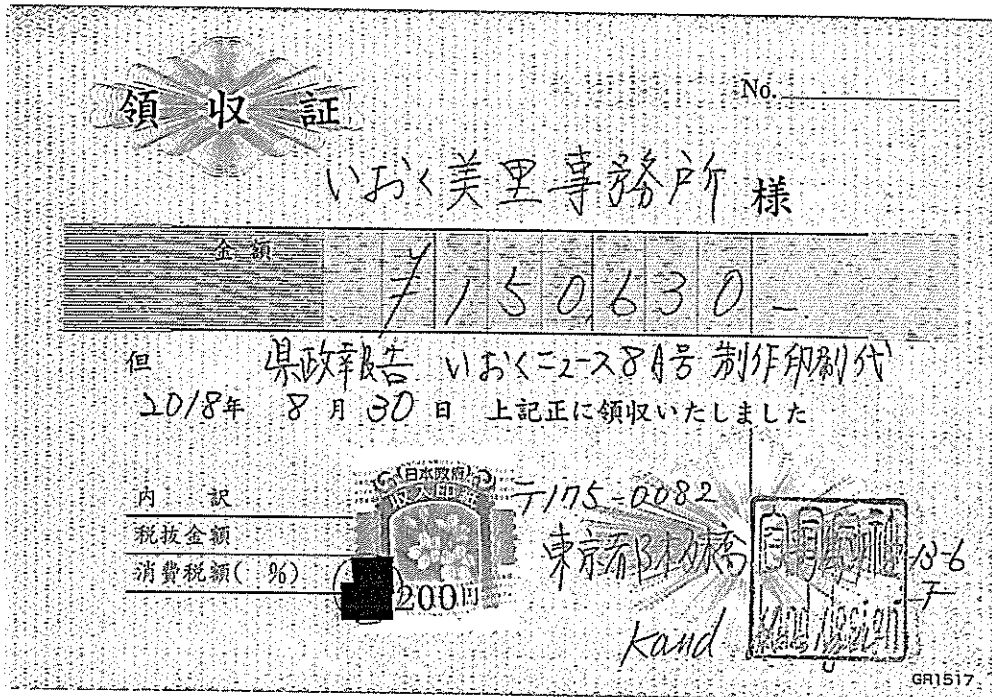 領収証
No.
いおく美里事務所 様
金額 ¥150,630-
但 県政報告 いおくニュース8月号 制作印刷代
2018年 8月30日 上記正に領収いたしました
内訳
税抜金額
消費税額( %)
日本政府
収入印紙
200円
〒175-0082
東京都板橋
13-6
Kand
GR1517